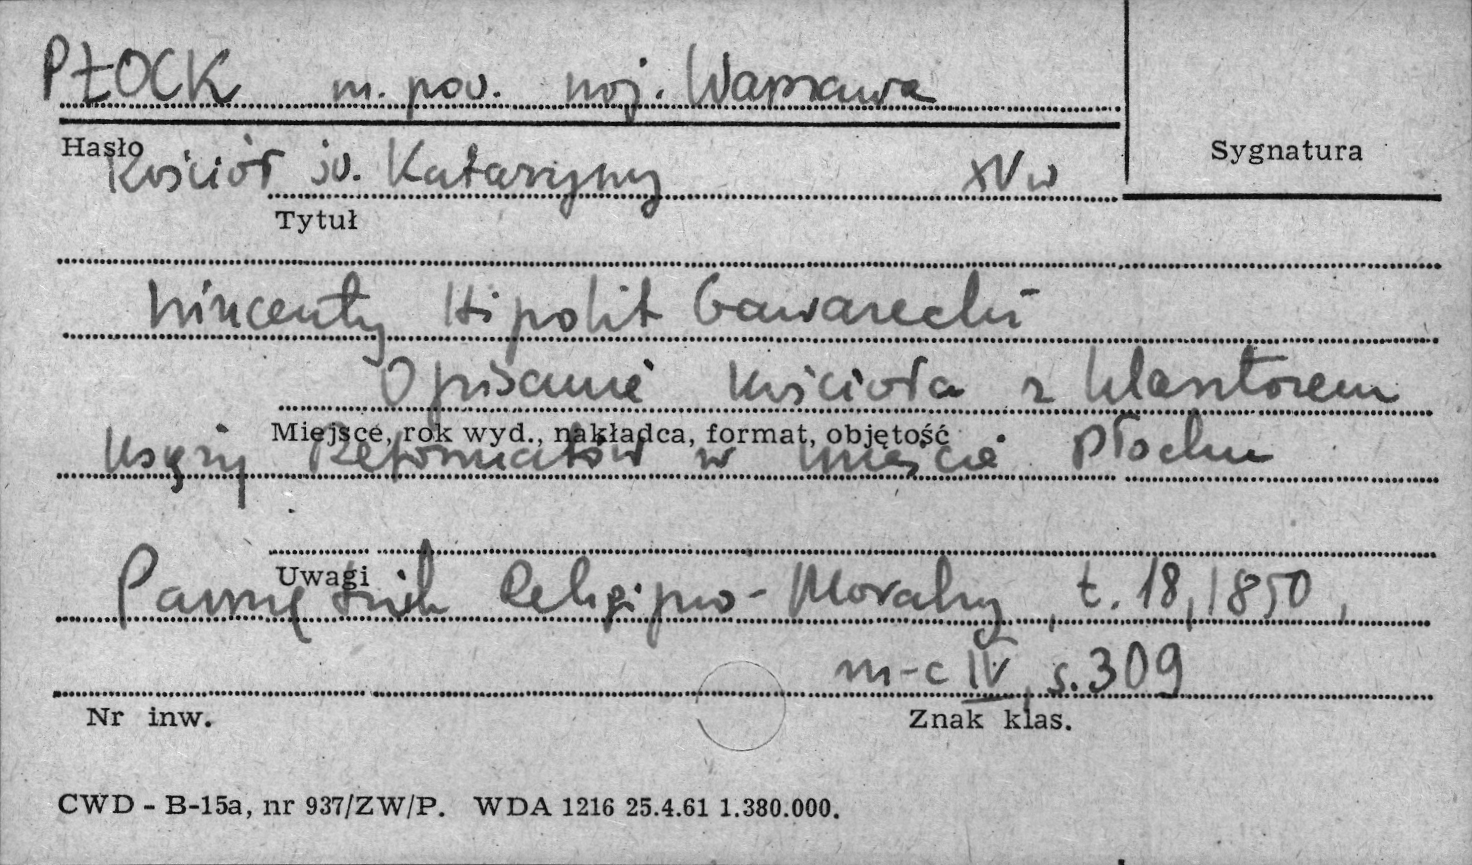 PŁOCK m. pow. woj. Warszawa
Hasło
Sygnatura
Kościół św. Katarzyny XV w
Tytuł
Wincenty Hipolit Gawarecki
Opisanie kościoła z klasztorem
Miejsce, rok wyd., nakładca, format, objętość
księży Reformatów w mieście Płocku
Uwagi
Pamiętnik Religijno-Moralny, t. 18, 1850,
m-c IV, s. 309
Nr inw.
Znak klas.
CWD - B-15a, nr 937/ZW/P. WDA 1216 25.4.61 1.380.000.